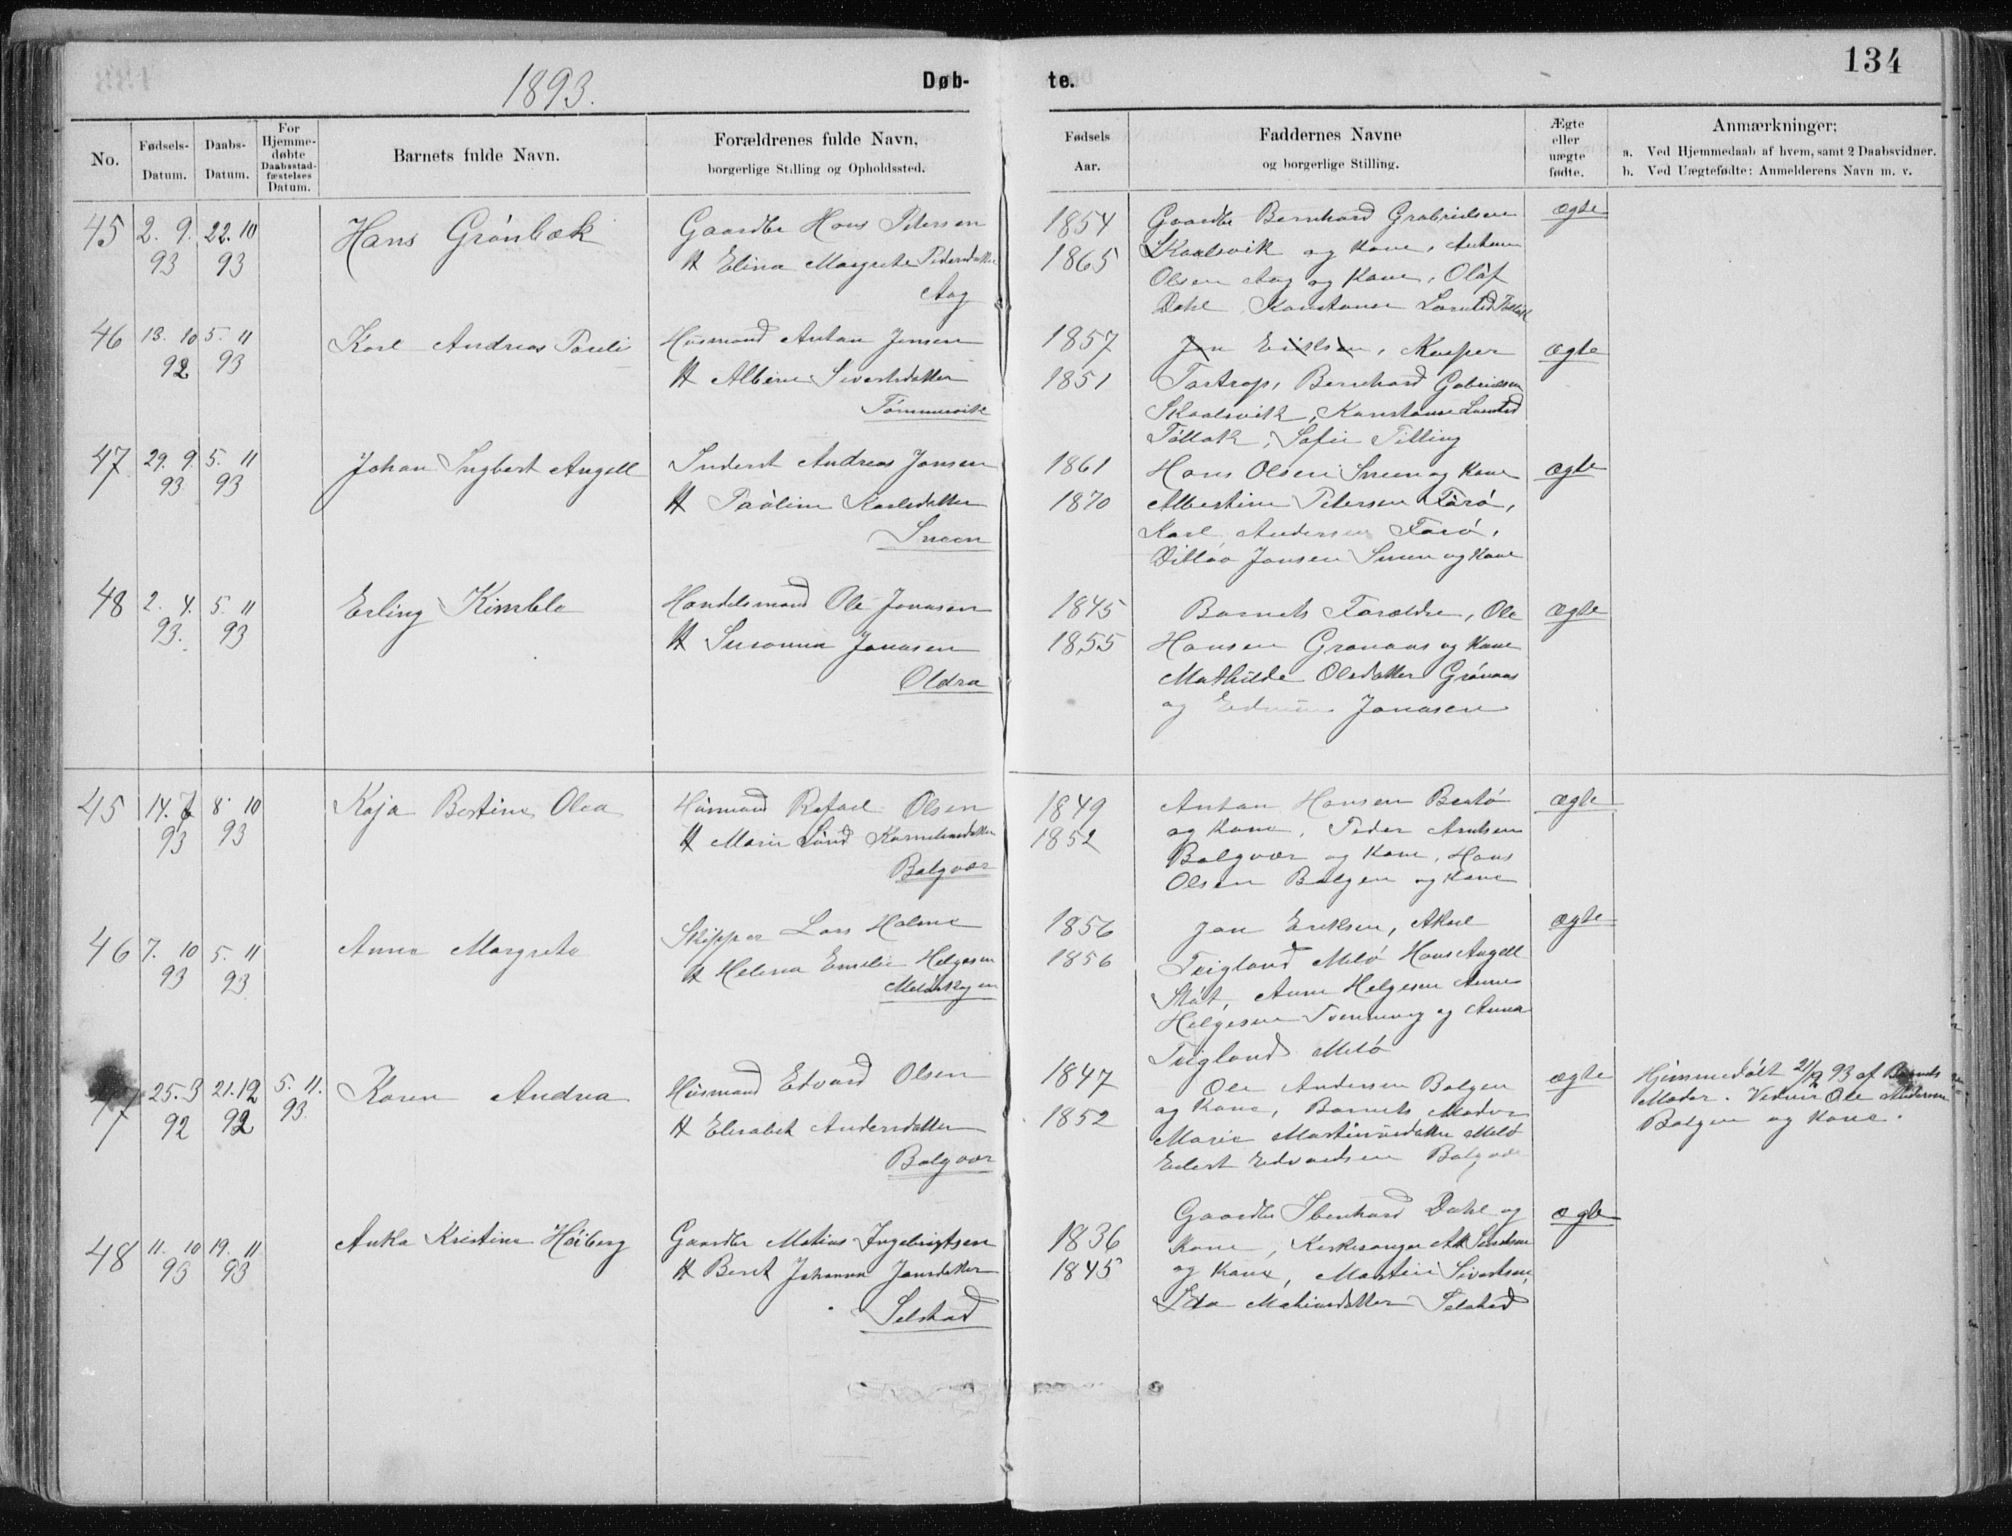 134
1893.
Døb- te.
No.
Fødsels-
Datum.
Daabs-
Datum.
For
Hjemme-
døbte
Daabsstad-
fæstelses
Datum.
Barnets fulde Navn.
Forældrenes fulde Navn,
borgerlige Stilling og Opholdssted.
Fødsels
Aar.
Faddernes Navne
og borgerlige Stilling.
Ægte
eller
uægte
fødte.
Anmærkninger;
a. Ved Hjemmedaab af hvem, samt 2 Daabsvidner.
b. Ved Uægtefødte: Anmelderens Navn m. v.
45 2. 9. 93 22. 10 93
Hans Grønbæk
Gaardbr Hans Petersen
H Elina Margrete Pedersdatter
Aag
1854
1865
Gaardbr Bernhard Grabrielsen
Skaalsvik og Kone, Anton
Olsen Aag og Kone, Olaf
Dahl Konstanse
ægte
46 13. 10 92 5. 11 93
Karl Andreas Paulis
Husmand Anton Jensen
H Albine Sivertsdatter
Tømmervik
1857
1851
Jon Eriksen, Kasper
Tostrop, Bernhard Gabrielsen
Skaalsvik, Konstanse
Tollak, Sofie Tilling
ægte
47 29. 9. 93 5. 11 93
Johan Ingbert Angell
Inderst Andreas Jonsen
H Pauline Karlsdatter
Sneen
1861
1870
Hans Olsen Sneen og Kone
Albertine Petersen Forø,
Karl Andersen Forø,
Ditlev Jonsen Sneen og Kone
ægte
48 2. 4. 93. 5. 11 93
Erling Kimble
Handelsmand Ole Jonasen
H Susanna Jonasen
Oldra
1845
1855
Barnets Forældre, Ole
Hansen Grønaas og Kone
Mathilde Olsdatter Grønaas
og Jonasen
ægte
45 14. 7 93 8. 10 93
Kaja Bertine Olea
Husmand Rafael Olsen
H Marie Lund Korneliusdatter
Bolgvær
1849
1852
Anton Hansen
og Kone, Peder Arntsen
Bolgvær og Kone, Hans
Olsen Bolgen og Kone
ægte
46 7. 10 93 5. 11 93
Anna Margrete
Skipper Lars Holme
H Helena Emelie Helgesen
Meløskogen
1856
1856
Jon Eriksen, Aksel
Tuigland Melø Hans Angell
Støt, Anne Helgesen Anne
Helgesen og Anna
Tuigland Melø
ægte
47 25. 3 92 21. 12 92 5. 11. 93
Karen Andrea
Husmand Edvard Olsen
H Elisabet Andersdatter
Bolgvær
1847
1852
Ole Andersen Bolgen
og Kone, Barnets Moder
Marie Martinusdatter Melø
Edvardsen
ægte
Hjemmedøbt 21/12 93 af Barnets
Moder. Vidner Ole Andersen
Bolgen og Kone.
48 11. 10 93 19. 11 93
Anka Kristine Høiberg
Gaardbr Matias Ingebrigtsen
H Beret Johanna Jonsdatter
Selstad
1836
1845
Gaardbr Ibenhard Dahl og
Kone, Kirkesanger
og Kone, Martin Sivertsen,
Ida Matiasdatter Selstad
ægte